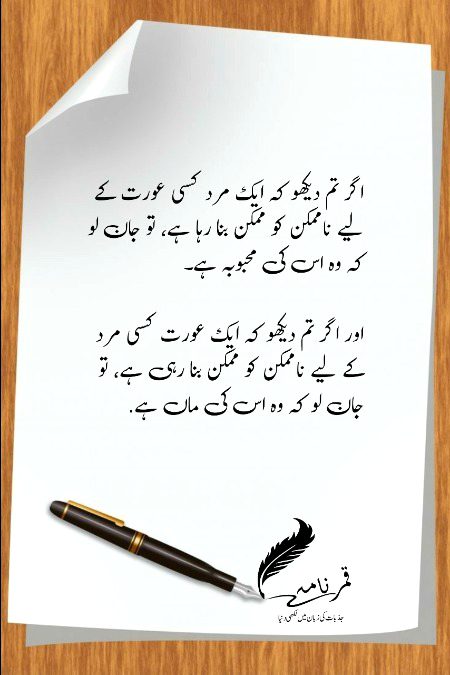 اگر تم دیکھو کہ ایک مرد کسی عورت کے
لیے ناممکن کو ممکن بنا رہا ہے، تو جان لو
کہ وہ اس کی محبوبہ ہے۔
اور اگر تم دیکھو کہ ایک عورت کسی مرد
کے لیے ناممکن کو ممکن بنا رہی ہے، تو
جان لو کہ وہ اس کی ماں ہے.
قمر نامہ
جذبات کی زبان میں لکھی دنیا